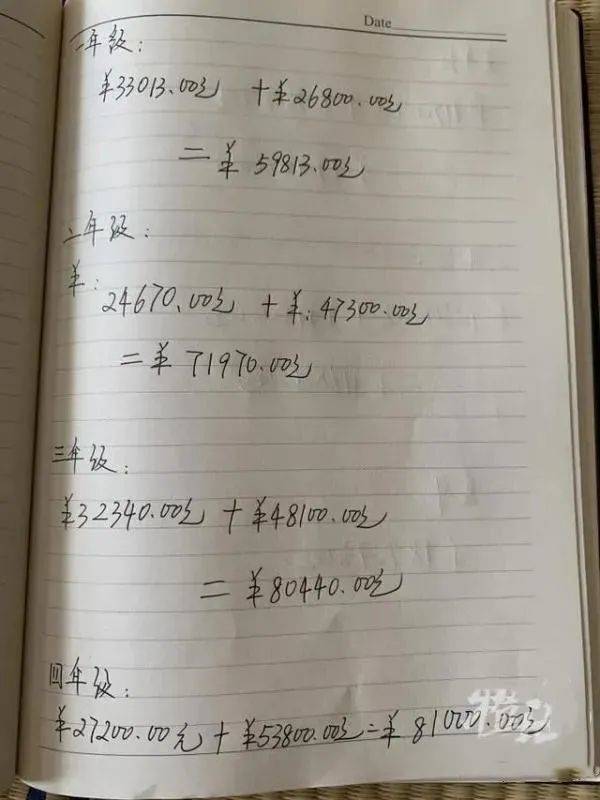 Date
一年级:
¥33013.00元 +¥26800.00元
=¥ 59813.00元
二年级:
¥:
24670.00元 +¥:47300.00元
=¥ 71970.00元
三年级:
¥32340.00元 +¥48100.00元
=¥80440.00元
四年级:
¥27200.00元 +¥53800.00元=¥81000.00元